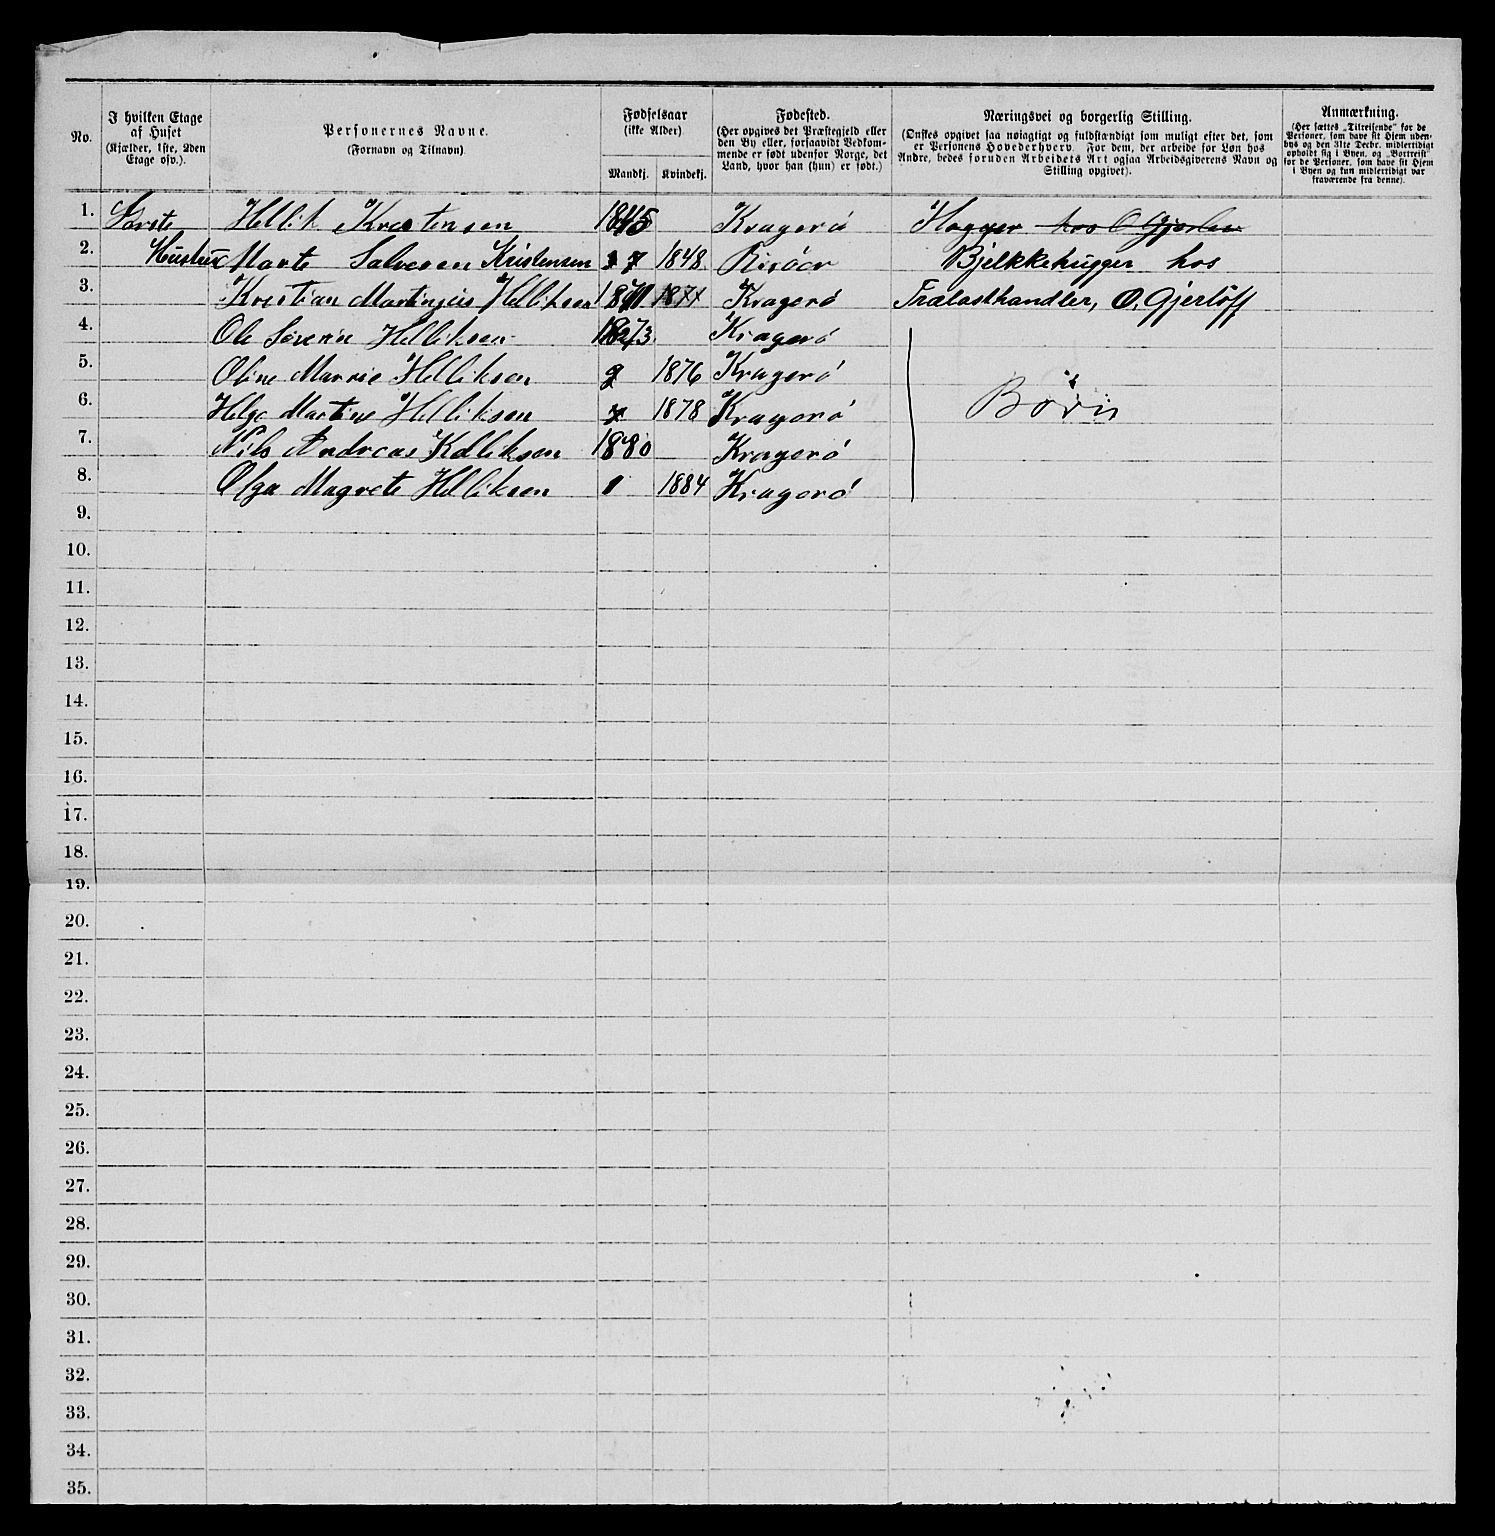 No.
I hvilken Etage
af Huset
(Kjælder, 1ste, 2den
Etage osv.).
Personernes Navne.
(Fornavn og Tilnavn)
Fødselsaar
(ikke Alder)
Mandkj. Kvindekj.
Fødested.
(Her opgives det Præstegjeld eller
den By eller, forsaavidt Vedkom-
mende er født udenfor Norge, det
Land, hvor han (hun) er født.)
Næringsvei og borgerlig Stilling.
(Ønskes opgivet saa nøiagtigt og fuldstændigt som muligt efter det, som
er Personens Hovederhverv. For dem, der arbeide for Løn hos
Andre, bedes foruden Arbeidets Art ogsaa Arbeidsgiverens Navn og
Stilling opgivet).
Anmærkning.
(Her sættes „Tilreisende“ for de
Personer, som have sit Hjem uden-
bys og den 31te Decbr. midlertidigt
opholdt sig i Byen, og „Bortreist“
for de Personer, som have sit Hjem
i Byen og kun midlertidigt var
fraværende fra denne).
1. Før​ste Hellik Kristensen 1845 Kragerö Hogger hos O Gjerløv
2. Hustru Marte Salvesen Kristensen 1848 Risöer Bjelkkehugger hos
3. Kristian Martinius Helliksen 1871 1871 Kragerö Trælasthandler, O, Gjerlöff
4. Ole Severin Helliksen 1873 Kragerö
5. Oline Marrie Helliksen 1876 Kragerö
6. Helga Martine Helliksen 1878 Kragerö Börn
7. Nils Andreas Helliksen 1880 Kragerö
8. Olga Magrete Helliksen 1884 Kragerö
9.
10.
11.
12.
13.
14.
15.
16.
17.
18.
19.
20.
21.
22.
23.
24.
25.
26.
27.
28.
29.
30.
31.
32.
33.
34.
35.